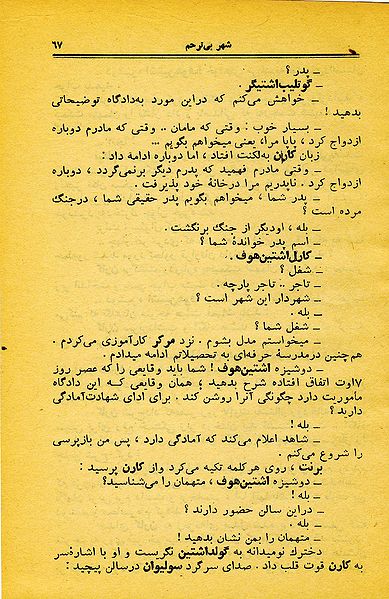 شهر بی‌ترحم
۶۷
ـ پدر ؟
ـ گوتلیب‌اشتیگر .
ـ خواهش می‌کنم که دراین مورد به‌دادگاه توضیحاتی
بدهید !
ـ بسیار خوب : وقتی که مامان .. وقتی که مادرم دوباره
ازدواج کرد ، بابا مرا، یعنی میخواهم بگویم ...
زبان کارن به‌لکنت افتاد ، اما دوباره ادامه داد :
ـ وقتی مادرم فهمید که پدرم دیگر برنمی‌گردد ، دوباره
ازدواج کرد . ناپدریم مرا درخانهٔ خود پذیرفت .
ـ پدر شما ، میخواهم بگویم پدر حقیقی شما ، درجنگ
مرده است ؟
ـ بله ، اودیگر از جنگ برنگشت .
ـ اسم پدر خواندهٔ شما ؟
ـ کارل‌اشتین‌هوف .
ـ شغل ؟
ـ تاجر .. تاجر پارچه .
ـ شهردار این شهر است ؟
ـ بله .
ـ شغل شما ؟
ـ میخواستم مدل بشوم . نزد مرکر کارآموزی می‌کردم .
هم‌چنین درمدرسهٔ حرفه‌ای به تحصیلاتم ادامه میدادم .
ـ دوشیزه اشتین‌هوف ! شما باید وقایعی را که عصر روز
۷اوت اتفاق افتاده شرح بدهید ؛ همان وقایعی که این دادگاه
ماموریت دارد چگونگی آنرا روشن کند . برای ادای شهادت‌آمادگی
دارید ؟
ـ بله !
ـ شاهد اعلام می‌کند که آمادگی دارد ، پس من بازپرسی
را شروع می‌کنم .
برنت ، روی هرکلمه تکیه می‌کرد واز کارن پرسید :
ـ دوشیزه اشتین‌هوف ، متهمان را می‌شناسید؟
ـ بله !
ـ دراین سالن حضور دارند ؟
ـ بله .
ـ متهمان را بمن نشان بدهید !
دخترك نومیدانه به گولداشتین نگریست و او با اشارهٔ‌سر
به کارن قوت قلب داد . صدای سرگرد سولیوان درسالن پیچید :